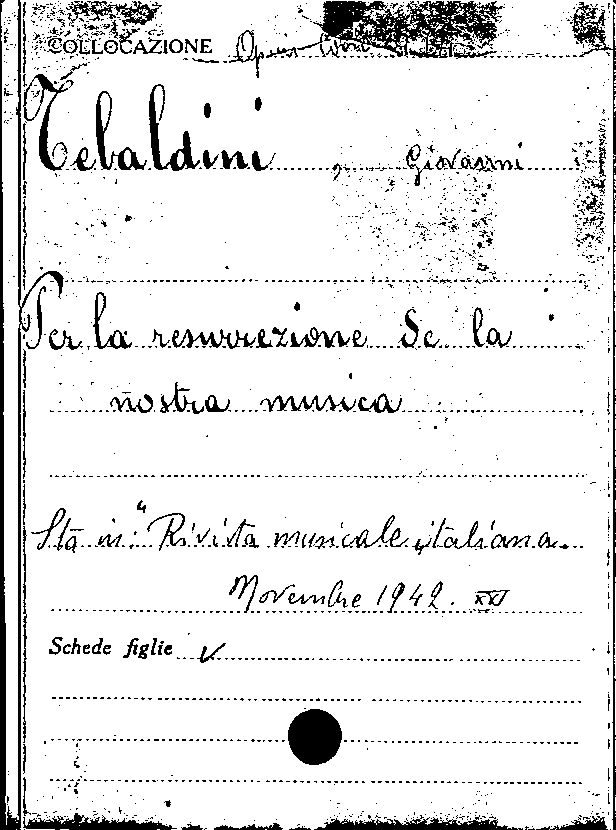 COLLOCAZIONE
Tebaldini, Giovanni
Per la resurrezione de la
nostra musica
Sta in: "Rivista musicale italiana.
Novembre 1942. XXI
Schede figlie